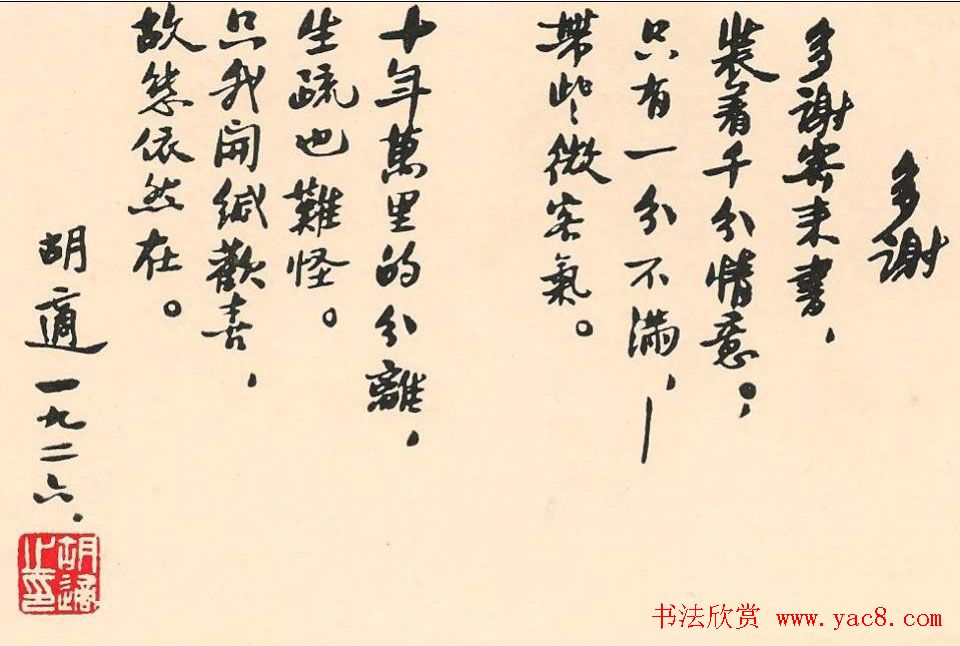 多謝
多謝寄来書，
裝着千分情意；
只有一分不滿，—
帶些微客氣。
十年萬里的分離，
生疏也難怪。
只我開緘歡喜，
故態依然在。
胡適 一九二六.
胡適之印
书法欣赏 www.yac8.com